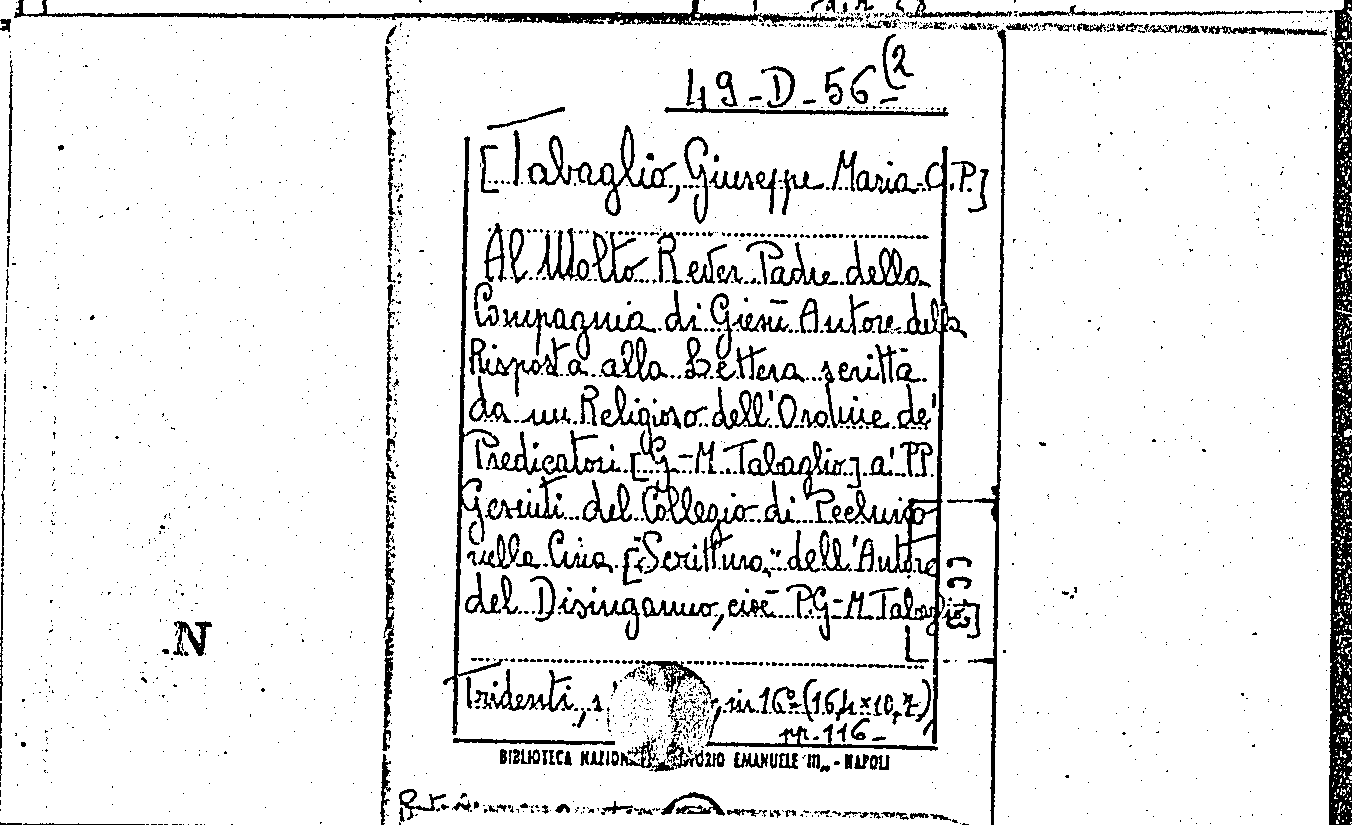 49-D-56(2
[Tabaglio, Giuseppe Maria O.P.]
Al Molto Rever Padre della
Compagnia di Giesù Autore della
Risposta alla Lettera scritta
da un Religioso dell'Ordine de'
Predicatori [G-M Tabaglio] a' PP.
Gesuiti del Collegio di Pechino
nella Cina ["Scrittura" dell'Autore
del Disinganno, cioè P. G-M Tabaglio]
Tridenti, in 16° (16,4 x 10,7)
pp. 116
BIBLIOTECA EMANUELE III - NAPOLI
N